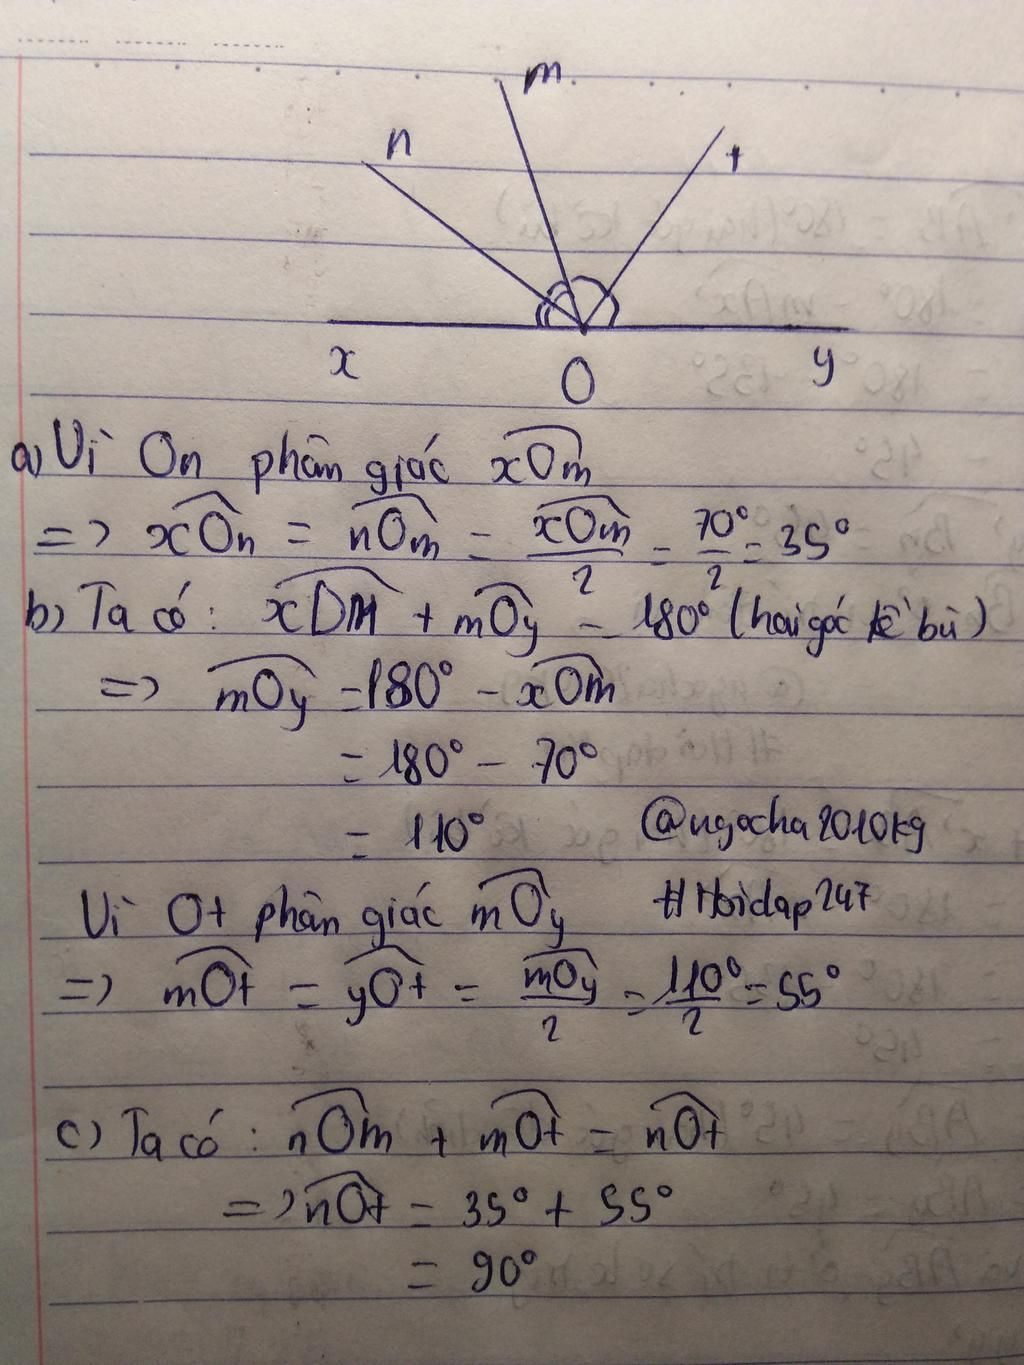 m
n
t
x
O
y
a) Vì On phân giác xOm
=> xOn = nOm = xOm/2 = 70°/2 = 35°
b) Ta có: xOm + mOy = 180° (hai góc kề bù)
=> mOy = 180° - xOm
= 180° - 70°
= 110°
@ngocha2010kg
Vì Ot phân giác mOy
#Hoidap247
=> mOt = yOt = mOy/2 = 110°/2 = 55°
c) Ta có: nOm + mOt = nOt
=> nOt = 35° + 55°
= 90°